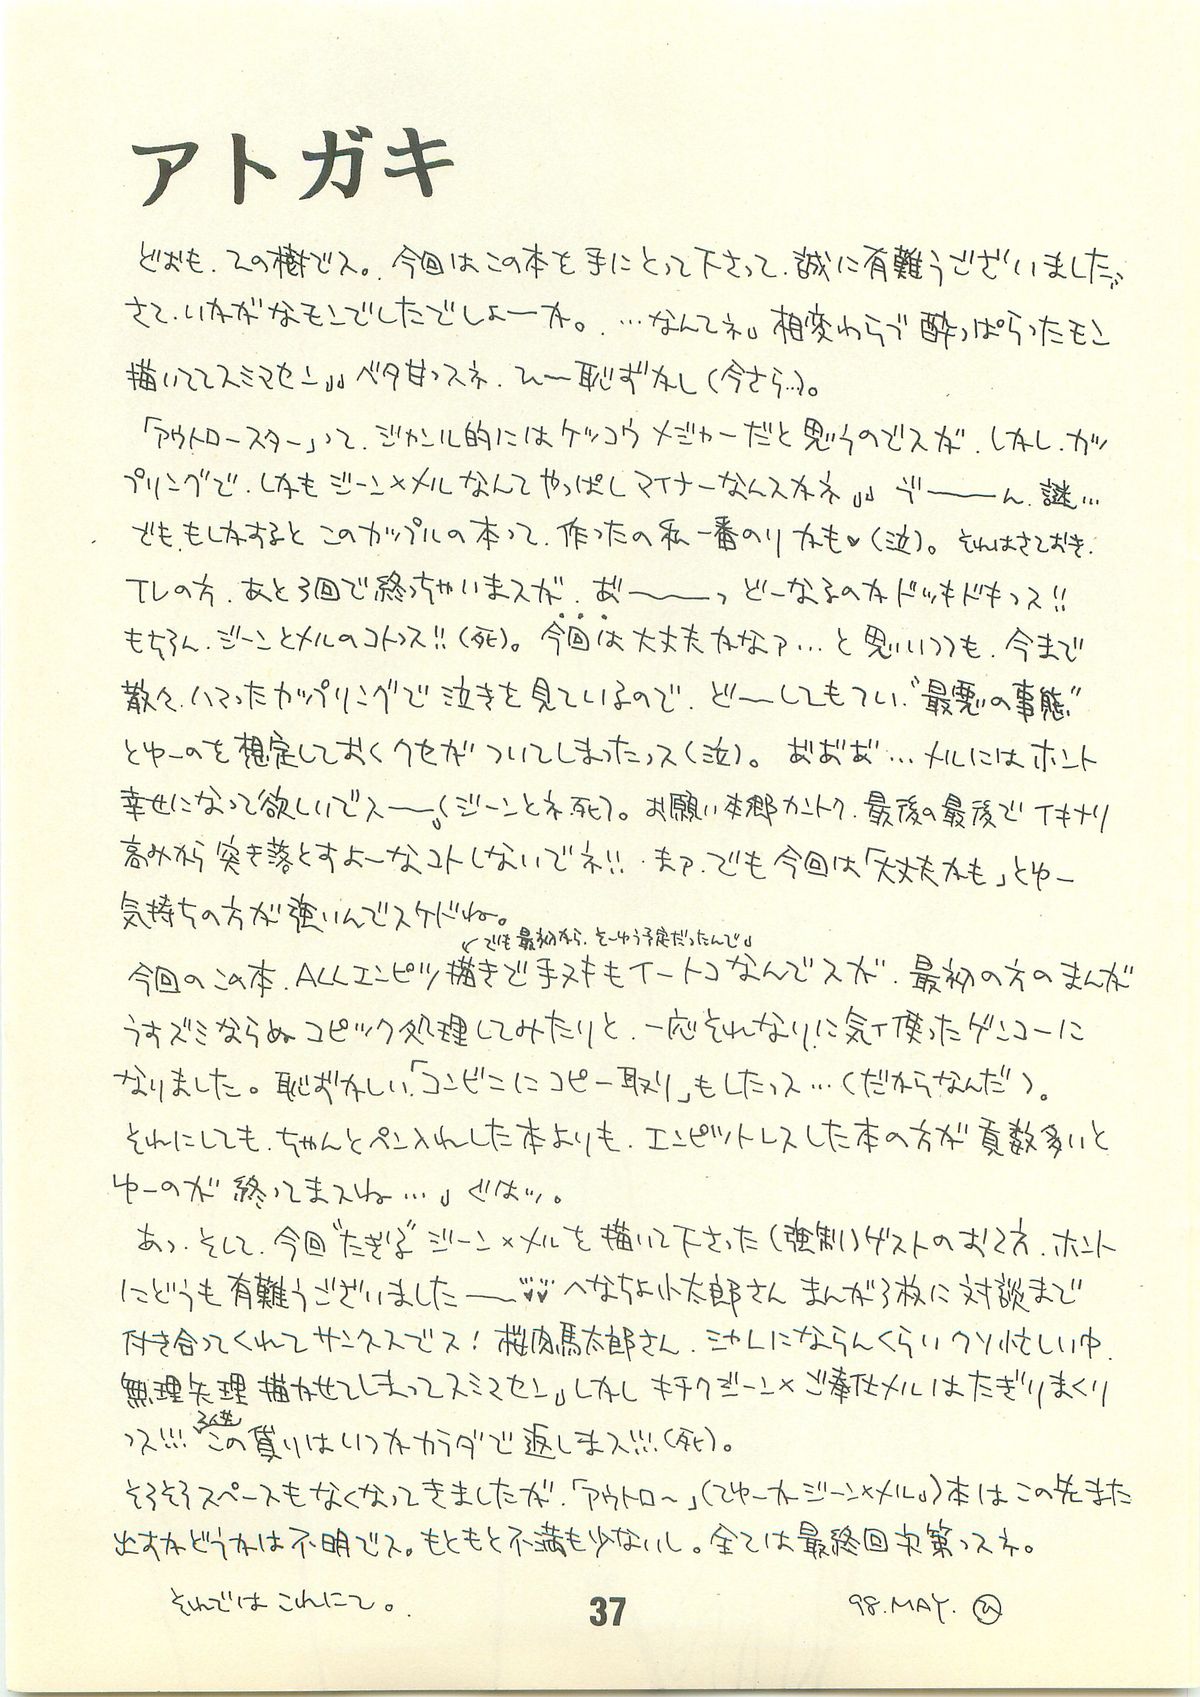 アトガキ
どおも、ひの樹でス。今回はこの本を手にとって下さって、誠に有難うございました。
さて、いかがなモンでしたでしょーか。…なんてネ。相変わらず酔っぱらったモン
描いててスミマセン。ベタ甘っスネ、ひー恥ずかし(今さら…)。
「アウトロースター」って、ジャンル的にはケッコウメジャーだと思うのでスが、しかし、カッ
プリングで、しかもジーン×メルなんてやっぱしマイナーなんスかネ。ゔーーーん、謎…
でも、もしかするとこのカップルの本って、作ったの私一番のりかも♥(泣)。それはさておき、
TVの方、あと3回で終っちゃいまスが、あ゛ーーーっどーなるのかドッキドキっス!!
もちろん、ジーンとメルのコトっス!!(死)。今回は大丈夫かなァ…と思いつつも、今まで
散々、ハマったカップリングで泣きを見ているので、どーしてもつい“最悪の事態”
とゆーのを想定しておくクセがついてしまったっス(泣)。あ゛あ゛あ゛…メルにはホント
幸せになって欲しいでスーー(ジーンとネ、死)。お願い本郷カントク、最後の最後でイキナリ
高みから突き落とすよーなコトしないでネ!!まァ、でも今回は「大丈夫かも」とゆー
気持ちの方が強いんでスケドね。
↙でも最初から、そーゆう予定だったんで
今回のこの本、ALLエンピツ描きで手ヌキもイートコなんでスが、最初の方のまんが
うすズミならぬコピック処理してみたりと、一応それなりに気ィ使ったゲンコーに
なりました。恥ずかしい「コンビニにコピー取り」もしたっス…(だからなんだ)。
それにしても、ちゃんとペン入れした本よりも、エンピツトレスした本の方が頁数多いと
ゆーのが終ってまスね…。ぐはッ。
あっ、そして、今回“たぎる”ジーン×メルを描いて下さった(強制)ゲストのお2方、ホント
にどうも有難うございましたーー♥♥へなちょ小太郎さん まんが3枚に対談まで
付き合ってくれてサンクスでス!桜肉馬太郎さん、シャレにならんくらいクソ忙しい中、
無理矢理描かせてしまってスミマセン。しかしキチクジーン×ご奉仕メルはたぎりまくり
っス!!!この借りはいつかカラダで返しまス!!!(死)。
そろそろスペースもなくなってきましたが、「アウトロ〜」(てゆーかジーン×メル)本はこの先また
出すかどうかは不明でス。もともと不満も少ないし。全ては最終回次第っスネ。
それではこれにて。
98.MAY. ひ
37